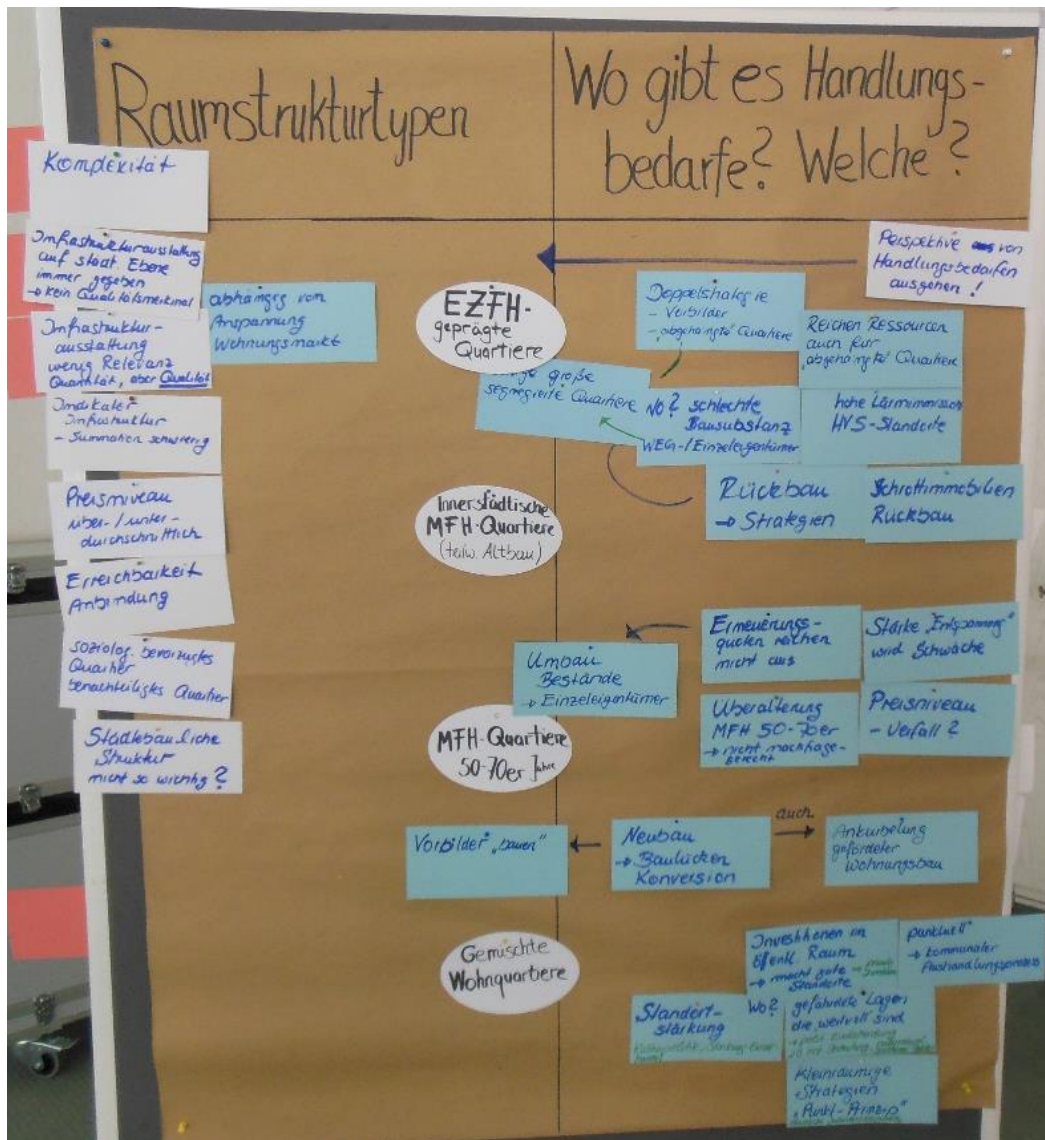 Raumstrukturtypen
Wo gibt es Handlungs-
bedarfe? Welche?
Komplexität
Infrastrukturausstattung
auf stadt. Ebene
immer gegeben
→ kein Qualitätsmerkmal
Infrastruktur-
ausstattung
wenig Relevanz
Quantität, aber Qualität
Indikator
Infrastruktur
- Summation schwierig
Preisniveau
über-/unter-
durchschnittlich
Erreichbarkeit
Anbindung
soziolog. bevorzugtes
Quartier
benachteiligtes Quartier
Städtebauliche
Struktur
nicht so wichtig?
abhängig von
Anspannung
Wohnungsmarkt
EZFH-
geprägte
Quartiere
Innerstädtische
MFH-Quartiere
(teilw. Altbau)
MFH-Quartiere
50-70er Jahre
Gemischte
Wohnquartiere
Perspektive von
Handlungsbedarfen
ausgehen!
Doppelstrategie
- Vorbilder
- "abgehängte" Quartiere
Reichen Ressourcen
auch für
"abgehängte" Quartiere
große
segregierte Quartiere
Wo? schlechte
Bausubstanz
WEG-/Einzeleigentümer
hohe Lärmimmission
HVS-Standorte
Rückbau
→ Strategien
Schrottimmobilien
Rückbau
Erneuerungs-
quoten reichen
nicht aus
Stärke "Entspannung"
wird Schwäche
Umbau
Bestände
→ Einzeleigentümer
Überalterung
MFH 50-70er
→ nicht nachfrage-
gerecht
Preisniveau
- Verfall?
Vorbilder "bauen"
Neubau
→ Baulücken
Konversion
auch
Ankurbelung
geförderter
Wohnungsbau
Investitionen im
öffentl. Raum
→ macht gute
Standorte
punktuell
→ kommunaler
Aushandlungsprozess
Standort-
stärkung
Wo? gefährdete Lagen
die wertvoll sind
Kleinräumige
Strategien
"Punkt-Prinzip"